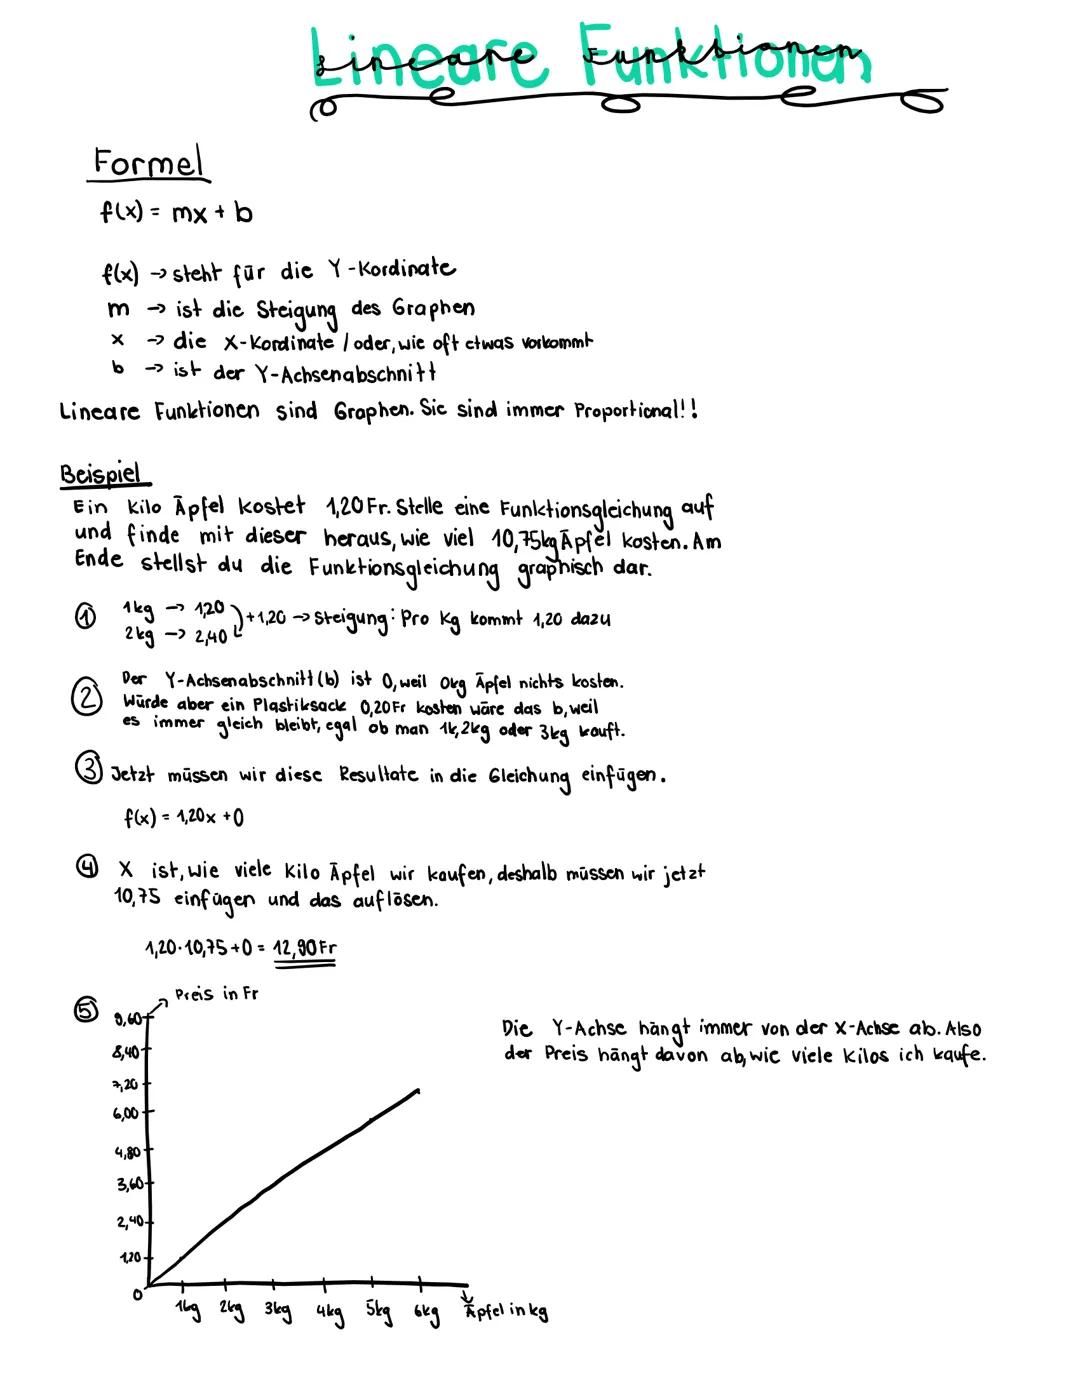 Lineare Funktionen
Lineare Funktionen
Formel
f(x) = mx + b
f(x) → steht für die Y-Kordinate
m → ist die Steigung des Graphen
x → die X-Kordinate / oder, wie oft etwas vorkommt
b → ist der Y-Achsenabschnitt
Lineare Funktionen sind Graphen. Sie sind immer Proportional!!
Beispiel
Ein Kilo Äpfel kostet 1,20 Fr. Stelle eine Funktionsgleichung auf
und finde mit dieser heraus, wie viel 10,75kg Äpfel kosten. Am
Ende stellst du die Funktionsgleichung graphisch dar.
① 1kg → 1,20
2kg → 2,40 +1,20 → Steigung: Pro Kg kommt 1,20 dazu
② Der Y-Achsenabschnitt (b) ist 0, weil 0kg Äpfel nichts kosten.
Würde aber ein Plastiksack 0,20Fr kosten wäre das b, weil
es immer gleich bleibt, egal ob man 1k, 2kg oder 3kg kauft.
③ Jetzt müssen wir diese Resultate in die Gleichung einfügen.
f(x) = 1,20x +0
④ X ist, wie viele Kilo Äpfel wir kaufen, deshalb müssen wir jetzt
10,75 einfügen und das auflösen.
1,20·10,75+0 = 12,90Fr
⑤ Preis in Fr
9,60
8,40
7,20
6,00
4,80
3,60
2,40
1,20
0
1kg 2kg 3kg 4kg 5kg 6kg Äpfel in kg
Die Y-Achse hängt immer von der X-Achse ab. Also
der Preis hängt davon ab, wie viele Kilos ich kaufe.